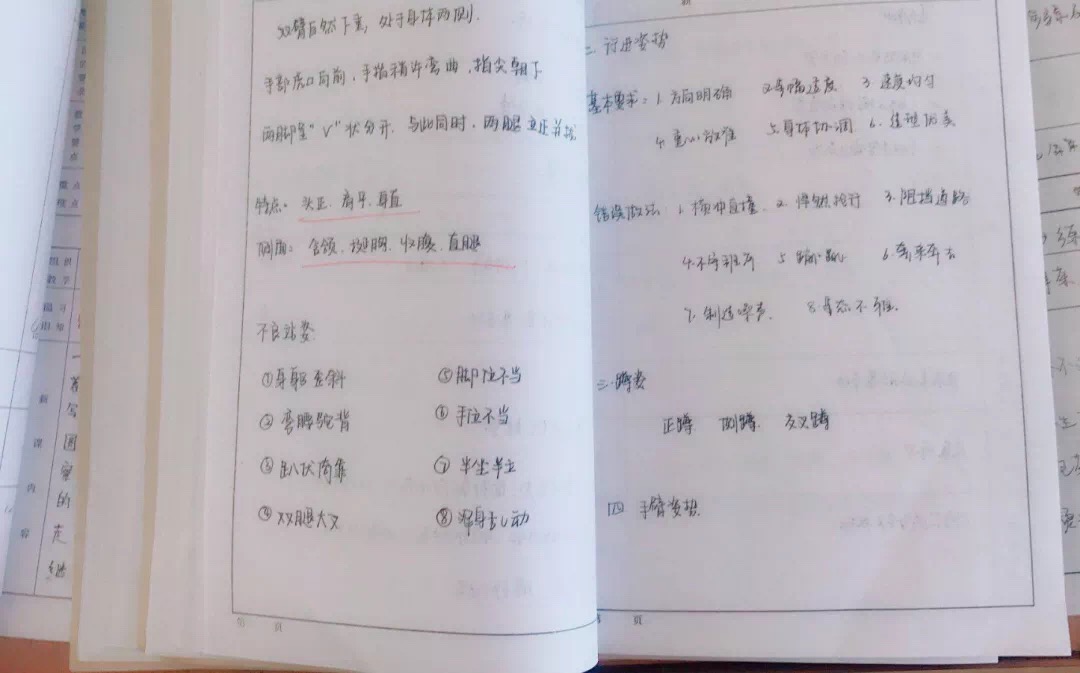 双臂自然下垂，处于身体两侧.
手部虎口向前，手指稍许弯曲，指尖朝下
两脚呈"V"状分开. 与此同时，两腿立正并拢
特点: 头正、肩平、身直
侧面: 含颌、挺胸、收腹、直腿
不良站姿:
①身躯歪斜 ⑤脚位不当
②弯腰驼背 ⑥手位不当
③趴伏倚靠 ⑦半坐半立
④双腿大叉 ⑧浑身乱动
第 页
二 行进姿势
基本要求: 1.方向明确 2.步幅适度 3.速度均匀
4.重心放准 5.身体协调 6.造型优美
错误做法 1.横冲直撞. 2.悍然抢行 3.阻挡道路
4.不守秩序 5.蹦蹦跳跳 6.奔来奔去
7.制造噪声. 8.步态不雅.
三.蹲姿
正蹲 侧蹲 交叉蹲
四 手臂姿势.
页
重点
难点
组织
教学
复习
新
课
内
容